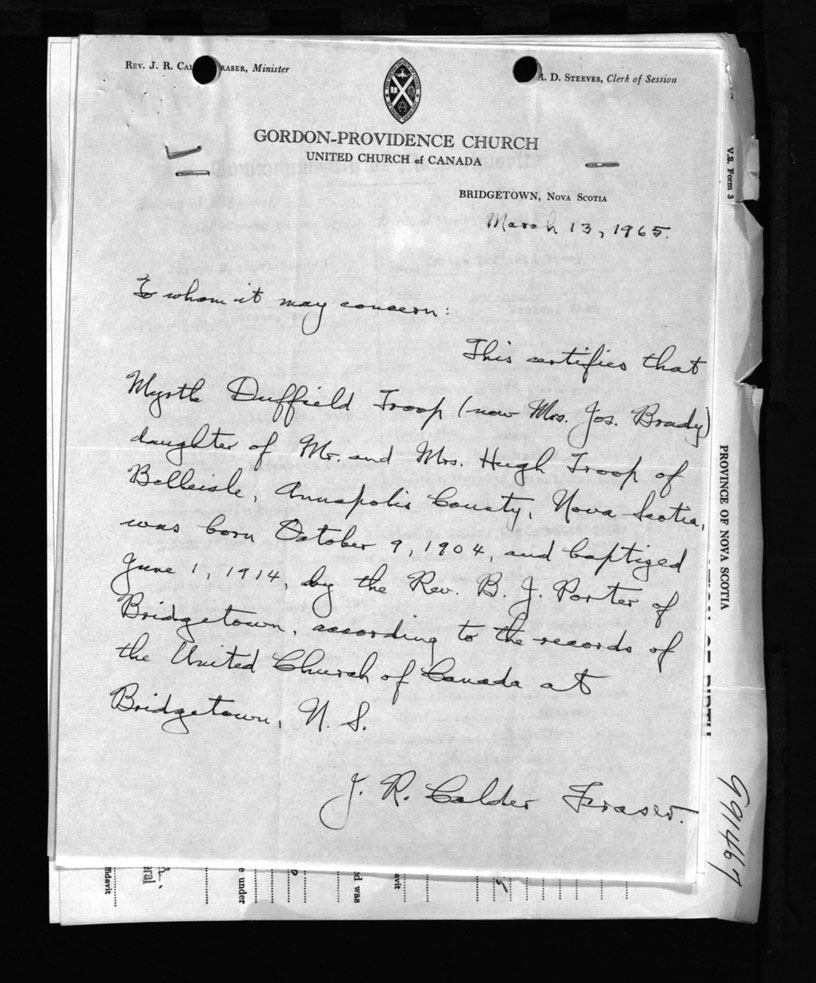 REV. J. R. CAL RASER, Minister
R. D. STEEVES, Clerk of Session
GORDON-PROVIDENCE CHURCH
UNITED CHURCH of CANADA
BRIDGETOWN, NOVA SCOTIA
March 13, 1965.
To whom it may concern:
This certifies that
Myrtle Duffield Troop (now Mrs. Jos. Brady)
daughter of Mr. and Mrs. Hugh Troop of
Belleisle, Annapolis County, Nova Scotia,
was born October 9, 1904, and baptized
June 1, 1914, by the Rev. B. J. Porter of
Bridgetown, according to the records of
the United Church of Canada at
Bridgetown, N. S.
J. R. Calder Fraser.
V.S. Form 3
PROVINCE OF NOVA SCOTIA
OF BIRTH
991467
ffidavit
eral
e under
ed was
avit
5